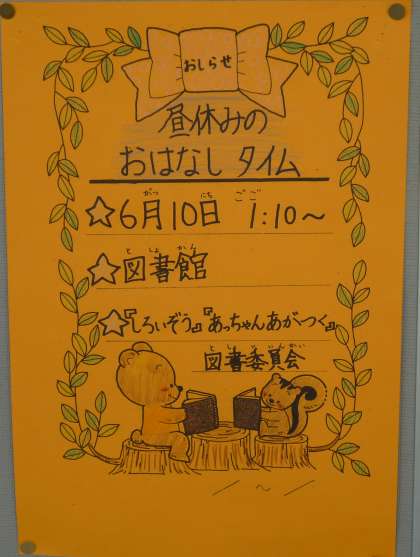 おしらせ
昼休みの
おはなし タイム
☆6月10日 1:10～
☆図書館
☆『しろいぞう』『あっちゃんあがつく』
図書委員会